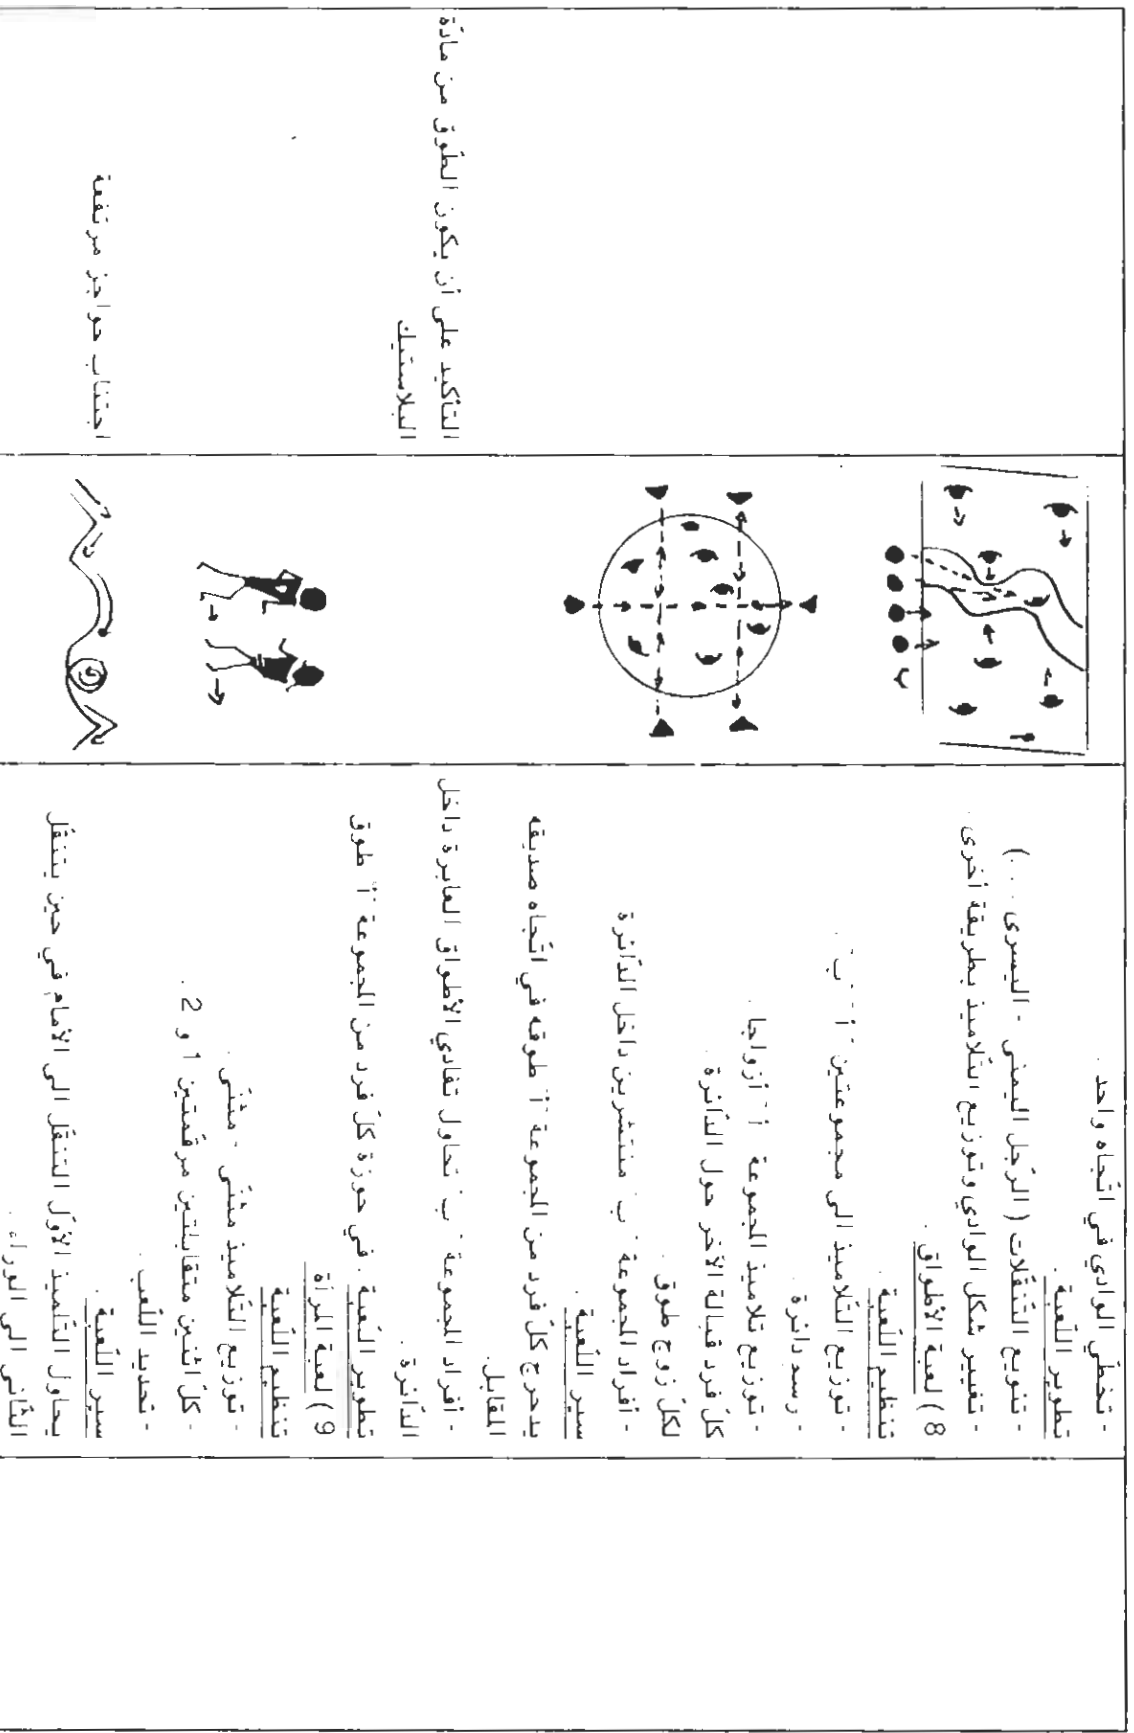 - تخطّي الوادي في اتّجاه واحد .
تطوير اللّعبة .
- تنويع التّنقّلات ( الرّجل اليمنى - اليسرى ...)
- تغيير شكل الوادي وتوزيع التّلاميذ بطريقة أخرى .
8 ) لعبة الأطواق .
تنظيم اللّعبة .
- توزيع التّلاميذ الى مجموعتين "أ" "ب" .
- رسم دائرة .
- توزيع تلاميذ المجموعة "أ" أزواجا .
كلّ فرد قبالة الآخر حول الدّائرة .
لكلّ زوج طوق .
- أفراد المجموعة "ب" منتشرين داخل الدّائرة
سير اللّعبة .
يدحرج كلّ فرد من المجموعة "أ" طوقه في اتّجاه صديقه
المقابل .
- أفراد المجموعة "ب" تحاول تفادي الأطواق العابرة داخل
الدّائرة .
تطوير اللّعبة . في حوزة كلّ فرد من المجموعة "أ" طوق
9 ) لعبة المرآة
تنظيم اللّعبة
- توزيع التّلاميذ مثنّى - مثنّى .
- كلّ اثنين متقابلتين مرقّمتين 1 و 2 .
- تحديد اللّعب .
سير اللّعبة .
يحاول التّلميذ الأوّل التنقّل الى الأمام في حين يتنقّل
الثّاني الى الوراء .
التأكيد على أن يكون الطّوق من مادّة
البلاستيك
اجتناب حواجز مرتفعة